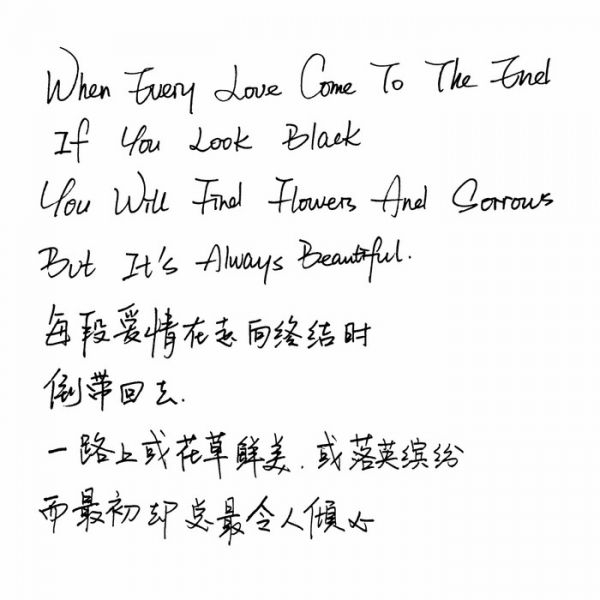 When Every Love Come To The End
If You Look Black
You Will Find Flowers And Sorrows
But It's Always Beautiful.
每段爱情在走向终结时
倒带回去.
一路上或花草鲜美.或落英缤纷
而最初却总最令人倾心